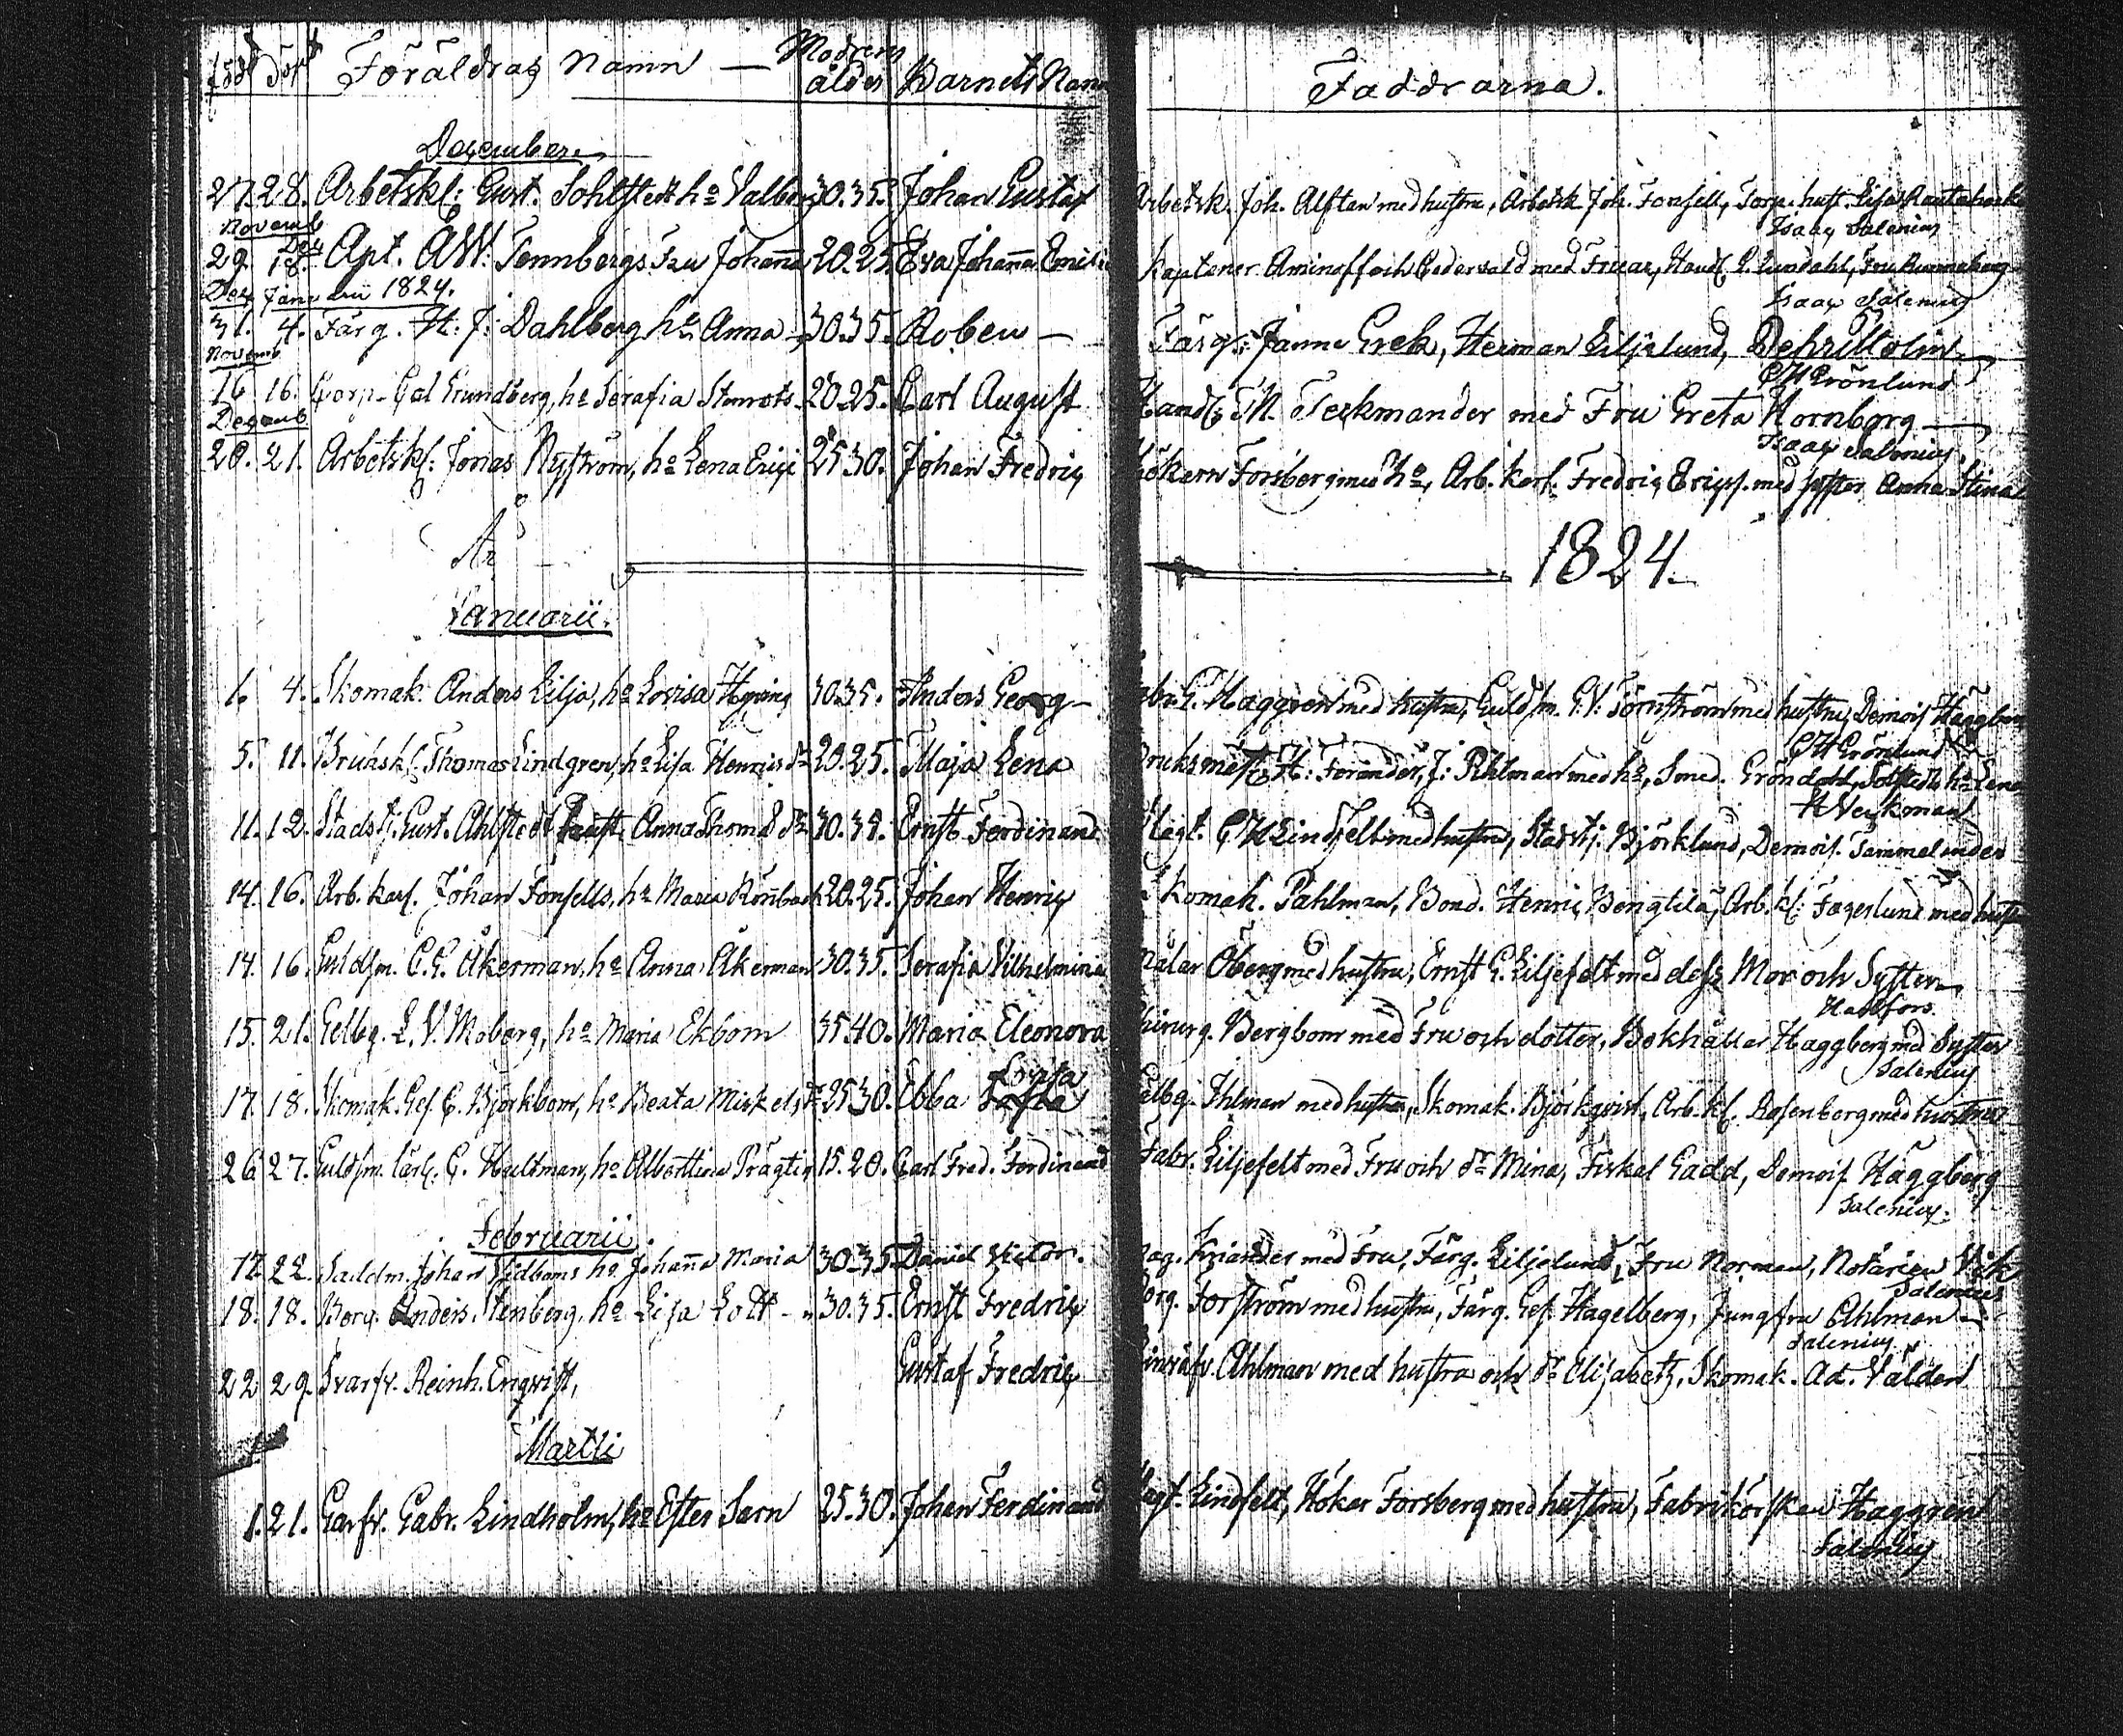 född döpt Föräldras Namn — Modrens ålder Barnets Namn
Faddrarna.
December.
27. 28. Arbetsk: Gust. Sohlstedt hº Valborg 30.35. Johan Gustaf
Arbetsk. Joh. Alftan med hustru, Arbetsk Joh. Fonsell, Torp. hust. Lisa
Isaac Salenius
Novemb
29. Dec 18. Apt. AW: Tennbergs Fru Johanna 20.25. Eva Johanna Emilia
Kaptener Aminoff och Cedervald med Fruar, Handl. Lundahl, Fru Runneberg
Isaac Salenius
Dec Januarii 1824.
31. 4. Färg. H: J: Dahlberg hº Anna 30.35. Roben —
Färg: Janne Grek, Herman Liljelund,
CH Grönlund
Novemb
16 16. Corp. Grundberg, hº Serafia 20.25. Carl August
Handl. Terkmander med Fru Greta Hornborg
Isaac Salenius
Decemb
20. 21. Arbetsk: Jonas Nyström, hº Lena Erics 25 30. Johan Fredric
Hökern Forsberg med hº, Arb. karl. Fredric Ericss. med syster Anna Stina
År 1824.
Januarii.
1. 4. Skomak. Anders Lilja, hº Lovisa 30.35. Anders Georg
G. Häggren med hustru, Guldsm. G.V. Törnström med hustru, Demois Häggberg
CH Grönlund
5. 11. Thomas Lindgren, hº Lisa Henricsdr 20.25. Maja Lena
Bruksmäst. H: Forander, J: Pihlman med hº, Smed. Gröndahl, hº Lena
H Veckman
11. 12. Stadstj. Gust. Ahlstedt Anna Thomasdr 30.35. Ernst Ferdinand
CH Lindfelt med hustru, Stadstj. Björklund, Demois. Tammelander
14. 16. Arb. karl. Johan Fonsells, hº Maria Rönnback 20.25. Johan Henric
Skomak. Påhlman, Bond. Henric Bengtilä, Arb. k: Fagerlund med hust
14. 16. Guldsm. C.G. Åkerman, hº Anna Åkerman 30.35. Serafia Vilhelmina
Målar Öberg med hustru, Ernst G. Liljefelt med dess Mor och Syster
Hallfors.
15. 21. Gelbg. L.V. Moberg, hº Maria Ekbom 35.40. Maria Eleonora
Chirurg. Bergbom med Fru och dotter, Bokhållar Häggberg med Syster
Salenius
17. 18. Skomak. Gef. C. Björkbom, hº Beata Mickelsdr 25 30. Ebba Lovisa
Gelbg. Ihlman med hustru, Skomak. Björkqvist, Arb. k. Rosenberg med hustru
26 27. Guldsm. Carl. G. Hultman, hº Albertina Prägtig 15. 20. Carl Fred. Ferdinand
Fabr. Liljefelt med Fru och dr Mina, Fiskal Gadd, Demois Häggberg
Salenius.
Februarii.
17. 22. Sadelm. Johan hº Johanna Maria 30.35. Daniel Victor.
med Fru, Färg. Liljelund, Fru Norman, Notarien Vik
Salenius
18. 18. Borg. Anders Stenberg, hº Lisa Lott 30.35. Ernst Fredric
Borg. Forström med hustru, Färg. Gef. Hagelberg, Jungfru Ahlman
Salenius
22 29. Svarfv. Reinh. Enqvist, Gustaf Fredric
Ahlman med hustru och dr Elisabeth, Skomak. Ad. Valden
Martii
1. 21. Garfv. Gabr. Lindholm, hº Ester Sarn 25.30. Johan Ferdinand
Lindfelt, Hökar Forsberg med hustru, Fabrikörskan Häggren
Salenius